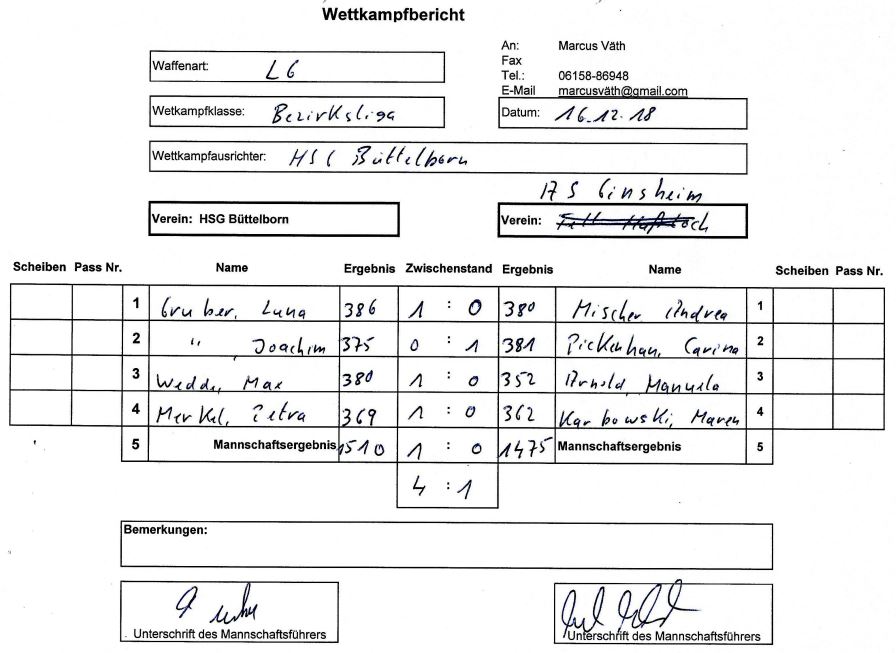 Wettkampfbericht
An: Marcus Väth
Fax
Tel.: 06158-86948
E-Mail marcusväth@gmail.com
Waffenart: LG
Wetkampfklasse: Bezirksliga
Datum: 16.12.18
Wettkampfausrichter: HSG Büttelborn
Ginsheim
Verein: HSG Büttelborn
Verein:
Scheiben Pass Nr. Name Ergebnis Zwischenstand Ergebnis Name Scheiben Pass Nr.
1 Gruber, Luna 386 1 : 0 380 Mischer Andrea 1
2 " , Joachim 375 0 : 1 381 Pickenhan, Carina 2
3 Wedde, Max 380 1 : 0 352 Arnold, Manuela 3
4 Merkel, Petra 369 1 : 0 362 Karbowski, Maren 4
5 Mannschaftsergebnis 1510 1 : 0 1475 Mannschaftsergebnis 5
4 : 1
Bemerkungen:
Unterschrift des Mannschaftsführers
Unterschrift des Mannschaftsführers